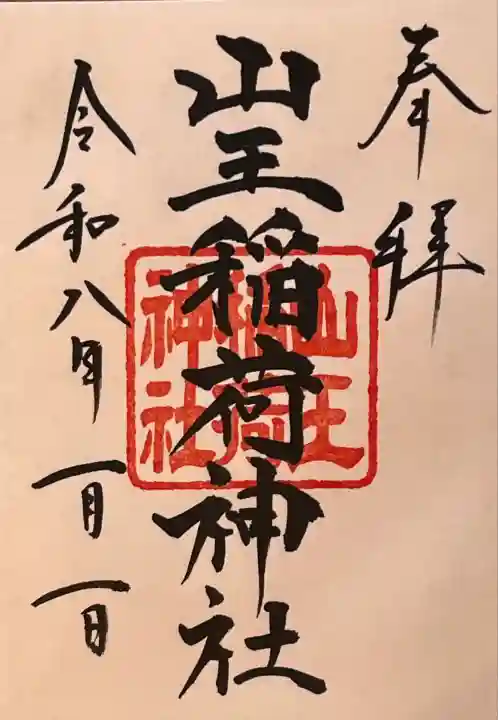 奉拝
山王稲荷神社
山王稲荷神社
令和八年一月一日